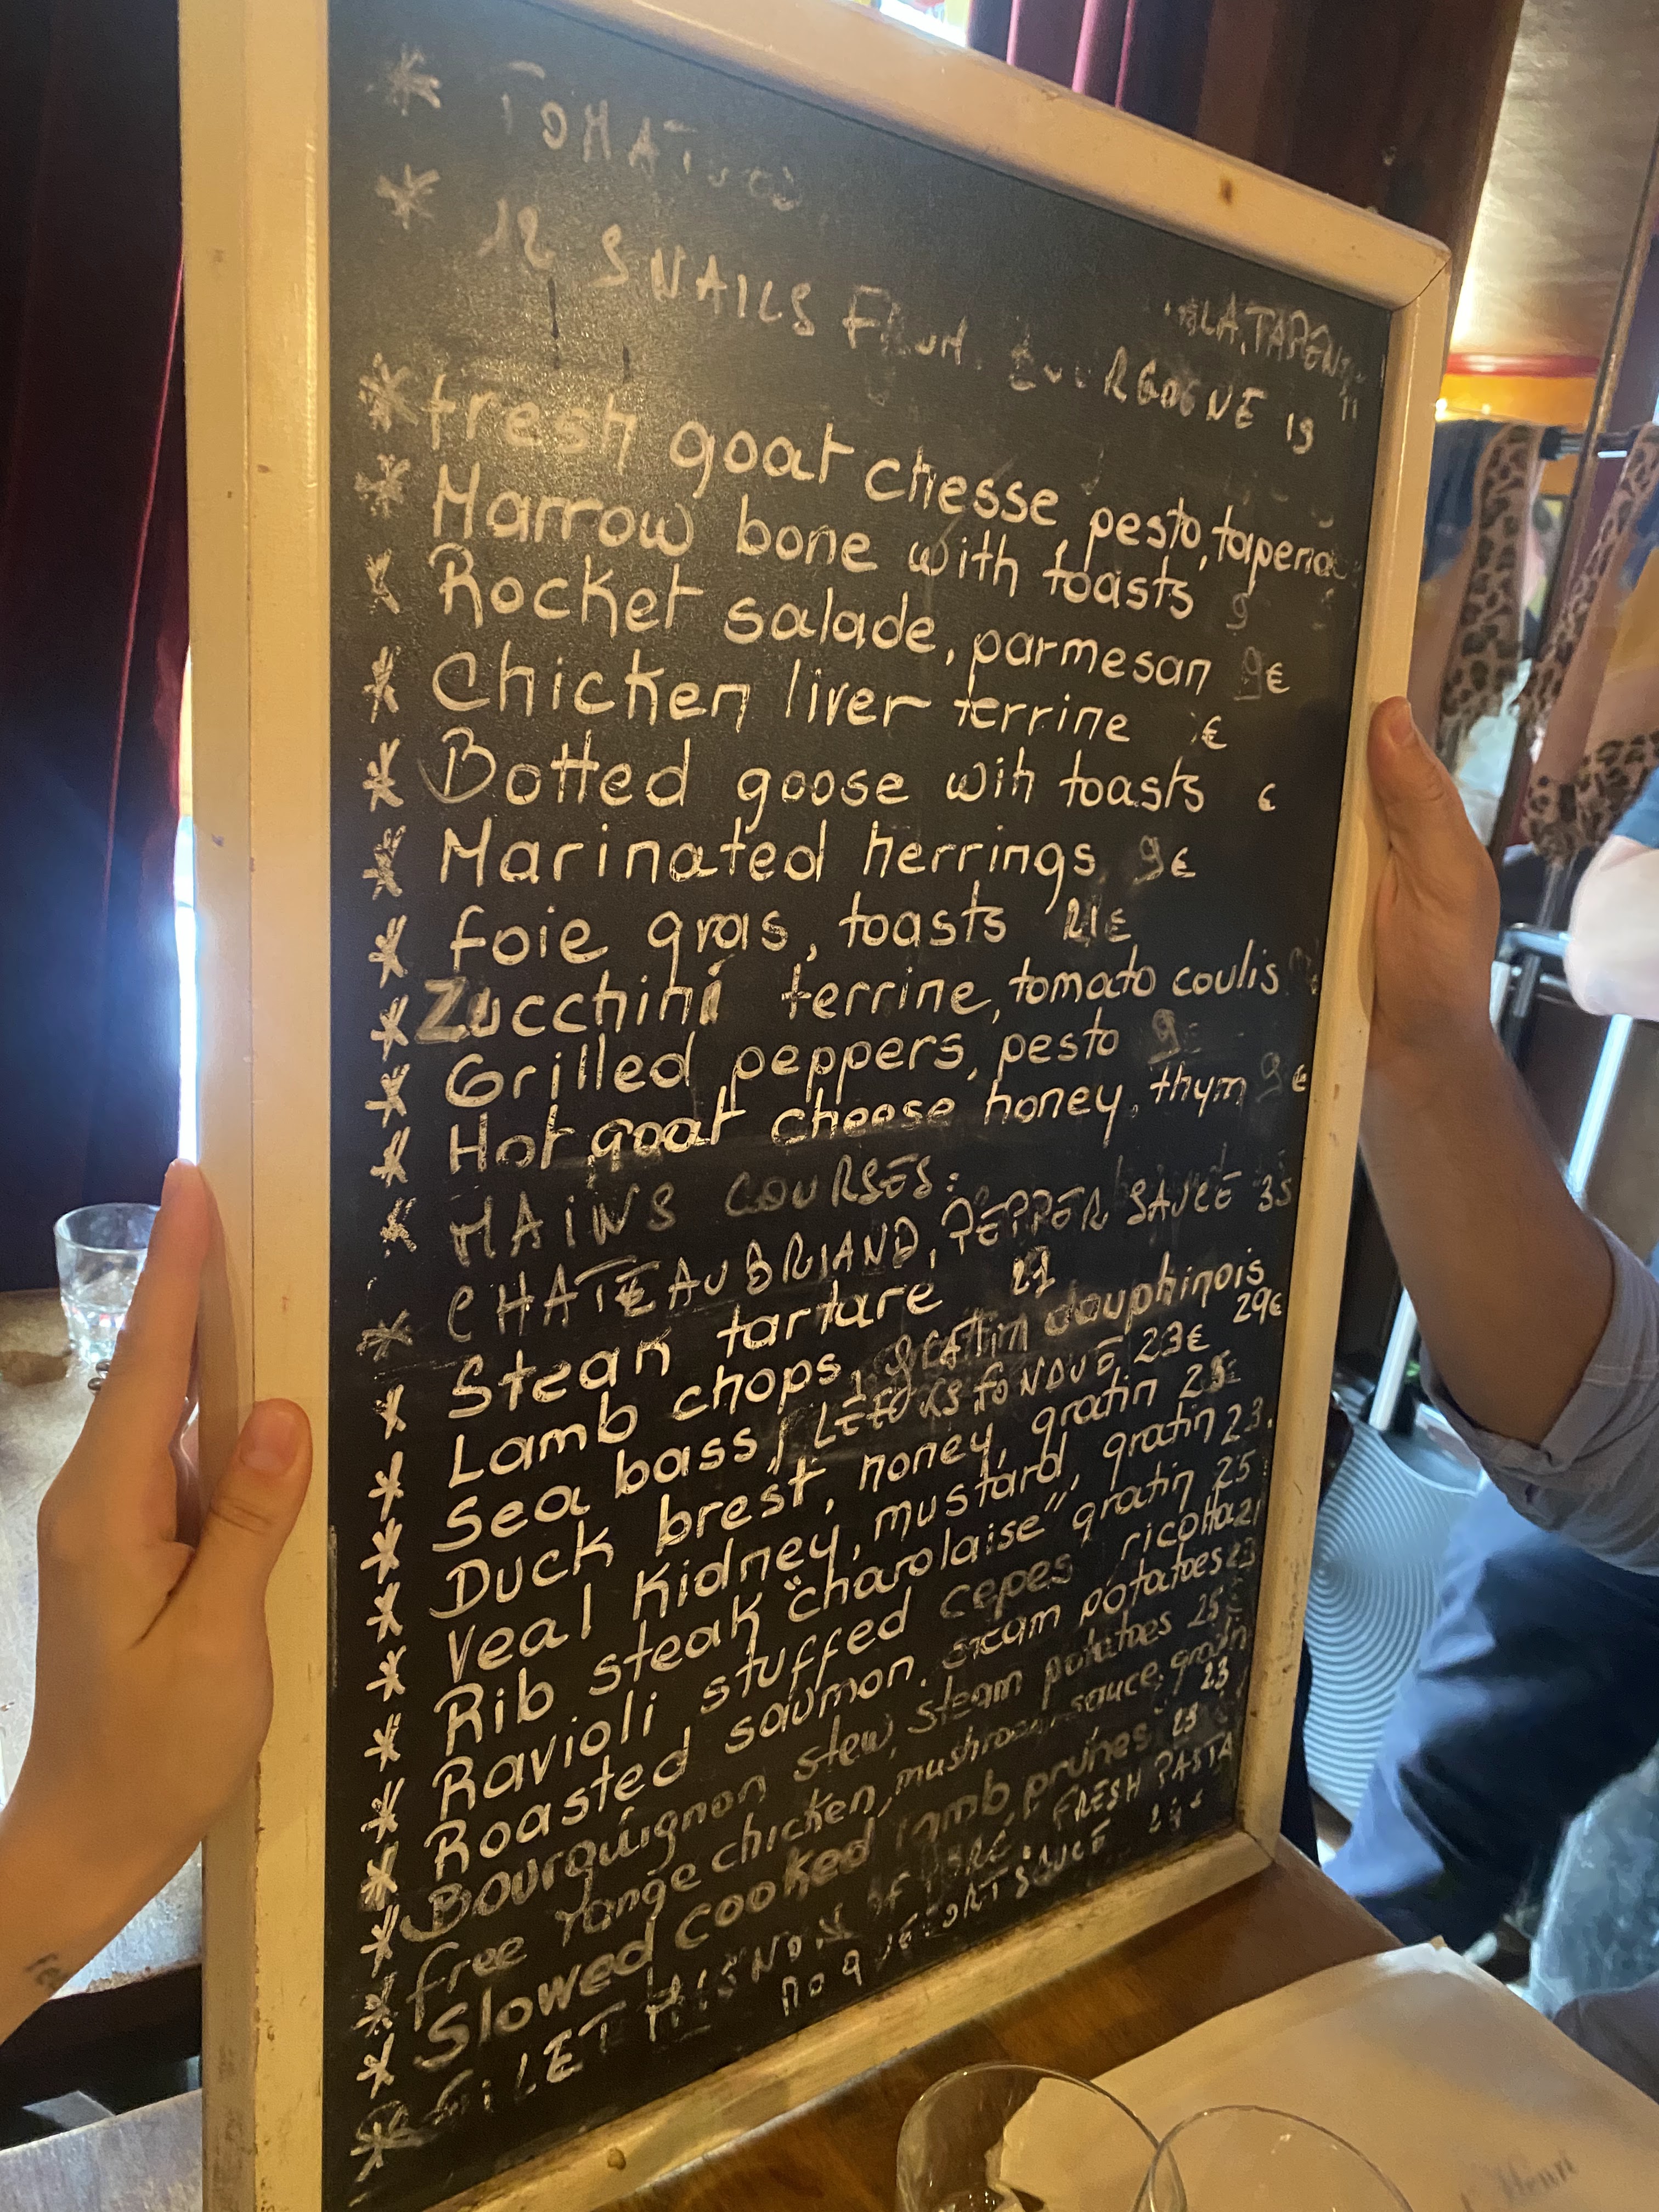 * TOMATOES
* 12 SNAILS FROM BOURGOGNE 19
* fresh goat chesse, pesto, tapena
* Marrow bone with toasts 9
* Rocket salade, parmesan 9€
* Chicken liver terrine €
* Botted goose wih toasts €
* Marinated herrings 9€
* foie gras, toasts 21€
* Zucchini terrine, tomato coulis
* Grilled peppers, pesto 9
* Hot goat cheese honey, thym 9€
* MAINS COURSES:
CHATEAUBRIAND, PEPPER SAUCE 35
* Steak tartare 21
* Lamb chops, gratin dauphinois 29€
* Sea bass, LEEKS FONDUE, 23€
* Duck brest, honey, gratin 25
* Veal kidney, mustard, gratin 23
* Rib steak "charolaise" gratin 25
* Ravioli stuffed cepes ricotta 21
* Roasted saumon steam potatoes 23
* Bourguignon stew, steam potatoes 25
* free range chicken, mushroom sauce, gratin 23
* Slowed cooked lamb, prunes 23
* FILET MIGNON OF PORC, FRESH PASTA
ROQUEFORT SAUCE